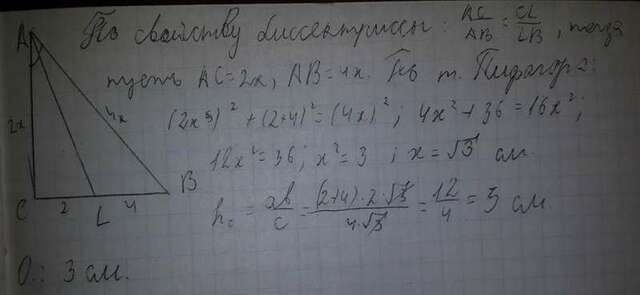 По свойству биссектриссы: AC/AB = CL/LB, тогда
пусть AC=2x, AB=4x. По т. Пифагора:
(2x)² + (2+4)² = (4x)²; 4x² + 36 = 16x²;
12x² = 36; x² = 3; x = √3 см.
h_c = ab/c = (2+4)·2√3/4√3 = 12/4 = 3 см
О.: 3 см.
A
2x
4x
C
2
L
4
B